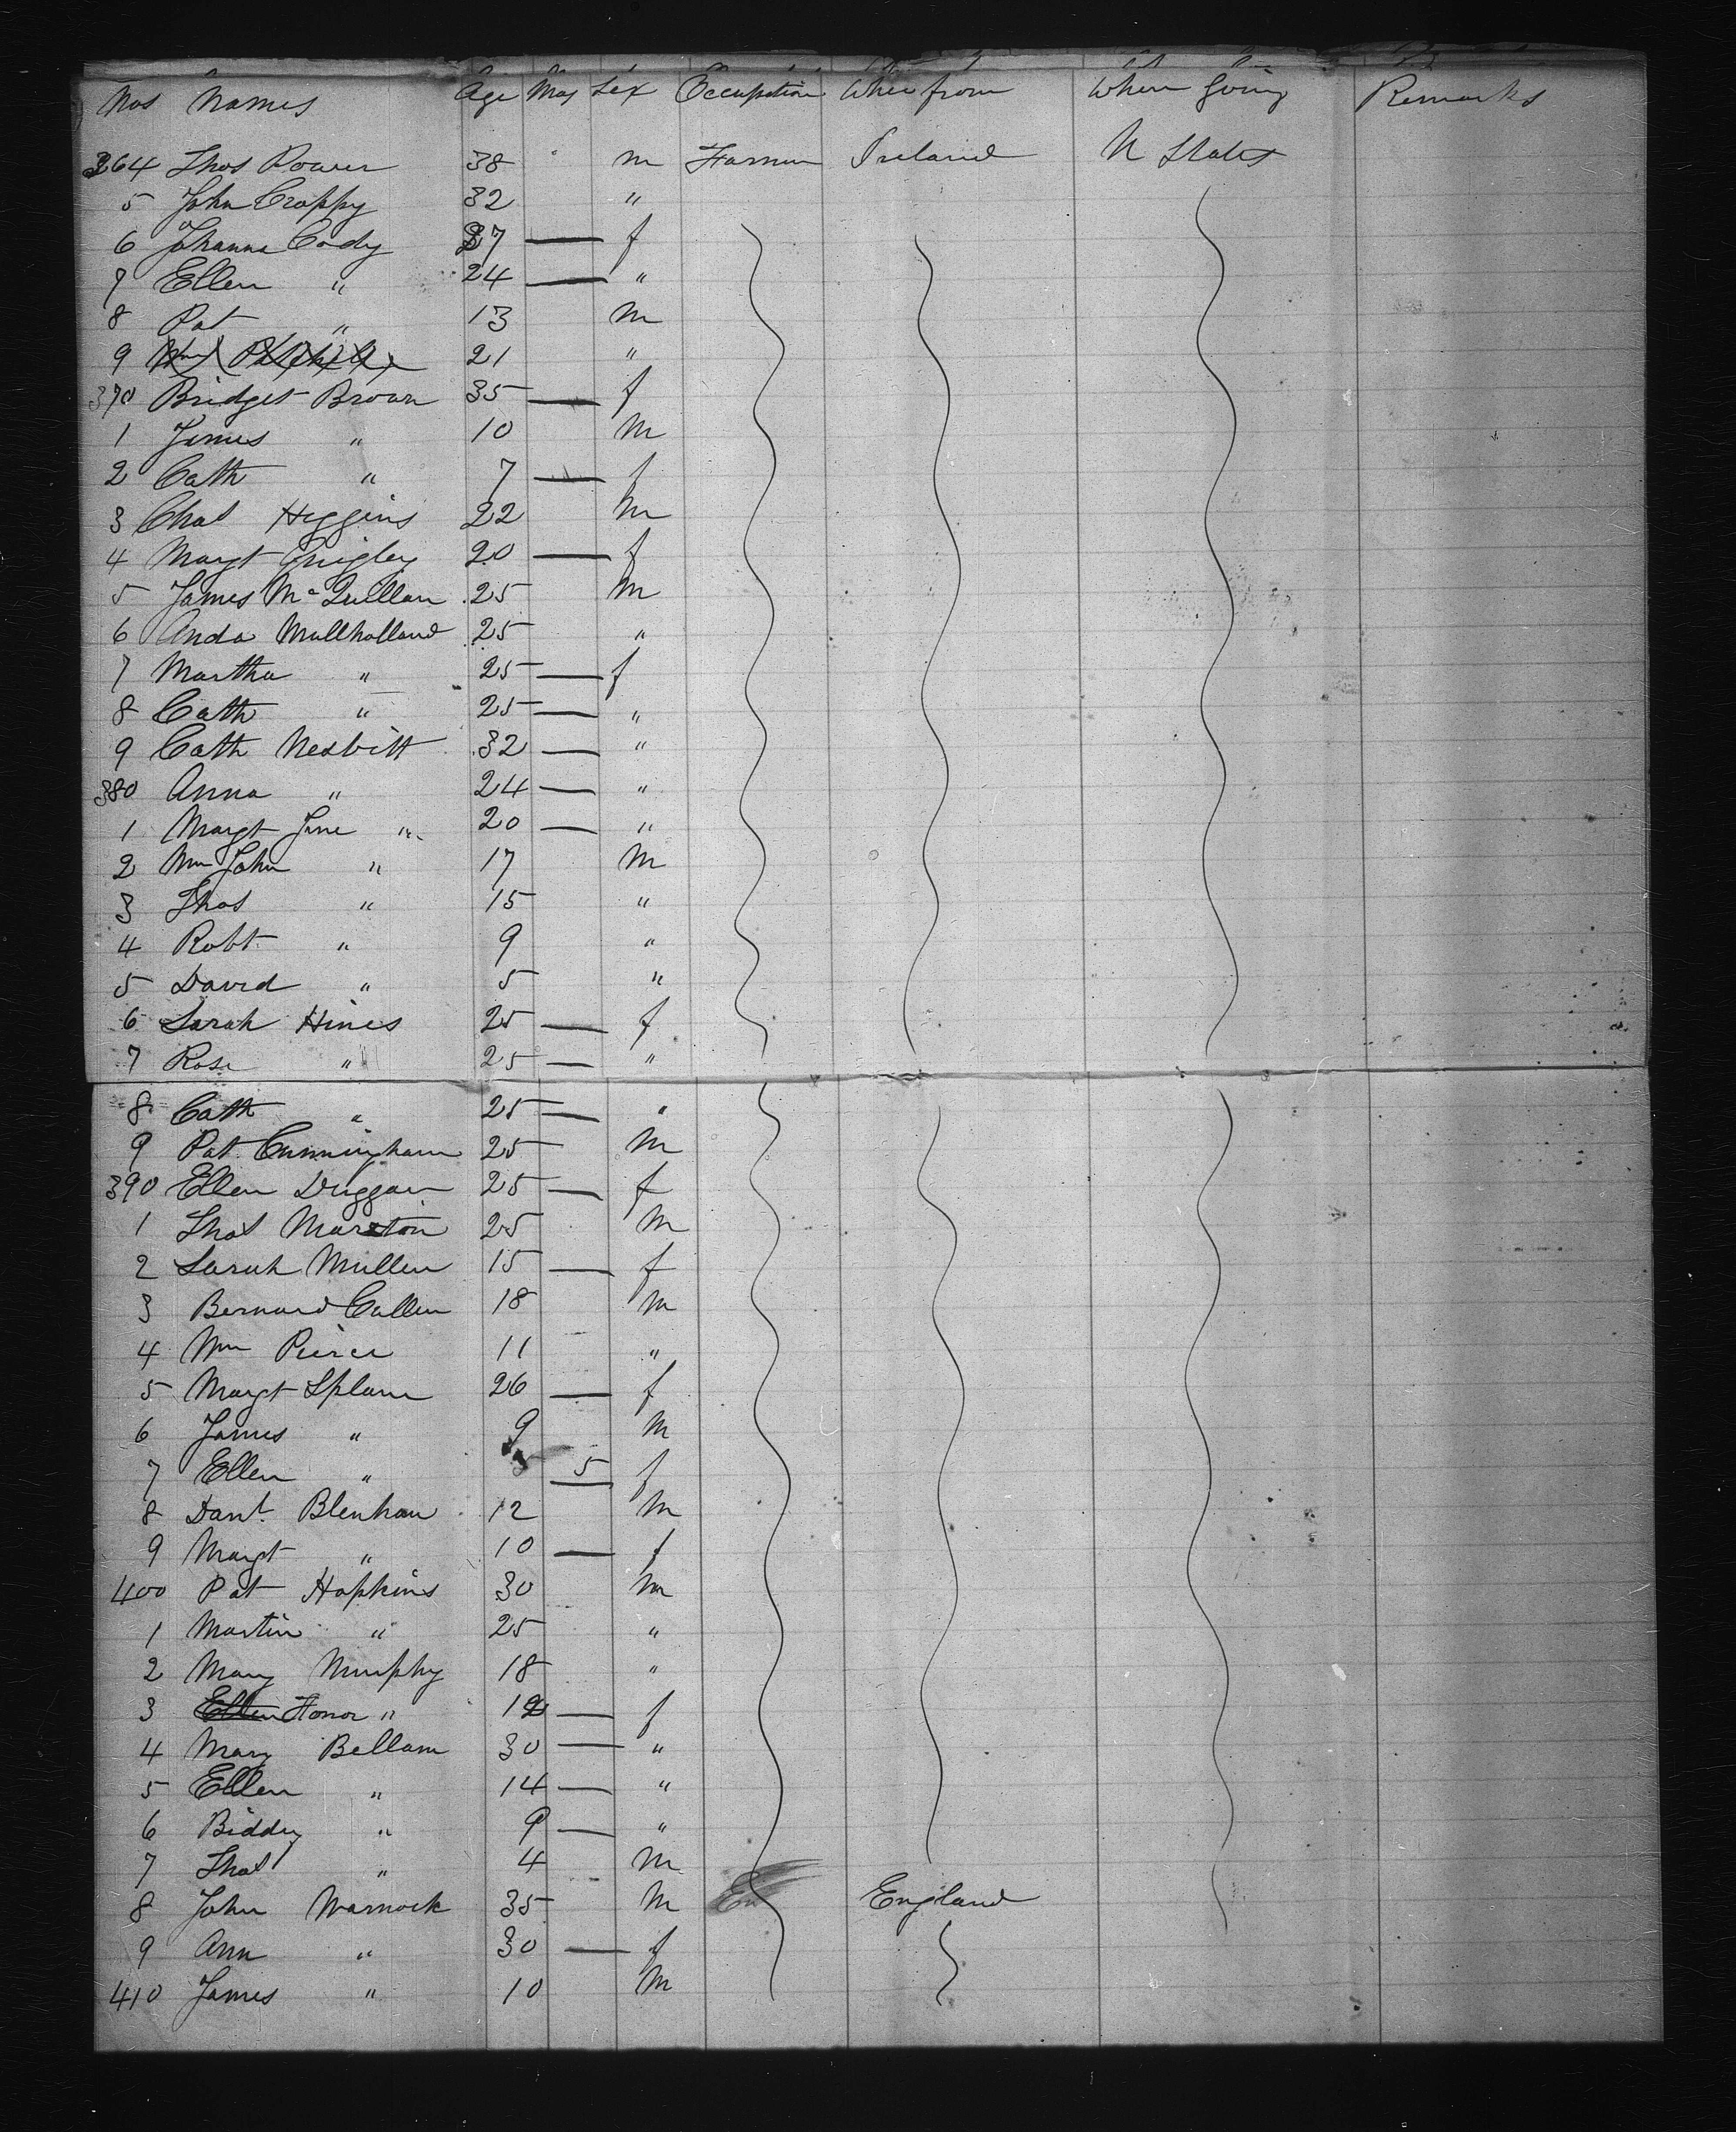 Nos Names Age Mos Sex Occupation Where from Where going Remarks
364 Thos Power 38 m Farmer Ireland U States
5 John Croppy 32 "
6 Johanna Cody 27 — f
7 Ellen " 24 — "
8 Pat " 13 m
9 Wm 21 "
370 Bridget Brown 35 — f
1 James " 10 M
2 Cath " 7 — f
3 Chas Higgins 22 M
4 Margt Quigley 20 — f
5 James McQuillan 25 M
6 Anda Mullholland 25 "
7 Martha " 25 — f
8 Cath " 25 — "
9 Cath Nesbitt 32 — "
380 Anna " 24 — "
1 Margt Jane " 20 — "
2 Wm John " 17 M
3 Thos " 15 "
4 Robt " 9 "
5 David " 5 "
6 Sarah Hines 25 — f
7 Rose " 25 — "
8 Cath " 25 — "
9 Pat Cunningham 25 M
390 Ellen Duggan 25 — f
1 Thos Marston 25 M
2 Sarah Mullen 15 — f
3 Bernard Cullen 18 M
4 Wm Pierce 11 "
5 Margt Splane 26 — f
6 James " 9 M
7 Ellen " 5 f
8 Danl. Blenhan 12 M
9 Margt " 10 — f
400 Pat Hopkins 30 M
1 Martin " 25 "
2 Mary Murphy 18 "
3 Ellen Honor " 19 — f
4 Mary Bellam 30 — "
5 Ellen " 14 — "
6 Biddy " 9 — "
7 Thos " 4 M
8 John Warnock 35 M En England
9 Ann " 30 — f
410 James " 10 M